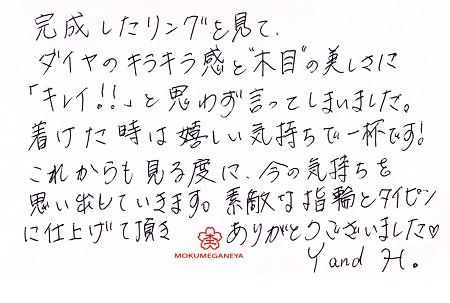 完成したリングを見て、
ダイヤのキラキラ感と"木目"の美しさに
「キレイ!!」と思わず言ってしまいました。
着けた時は嬉しい気持ちで一杯です!
これからも見る度に、今の気持ちを
思い出していきます。素敵な指輪とタイピン
に仕上げて頂き ありがとうございました♡
MOKUMEGANEYA
Y and H.